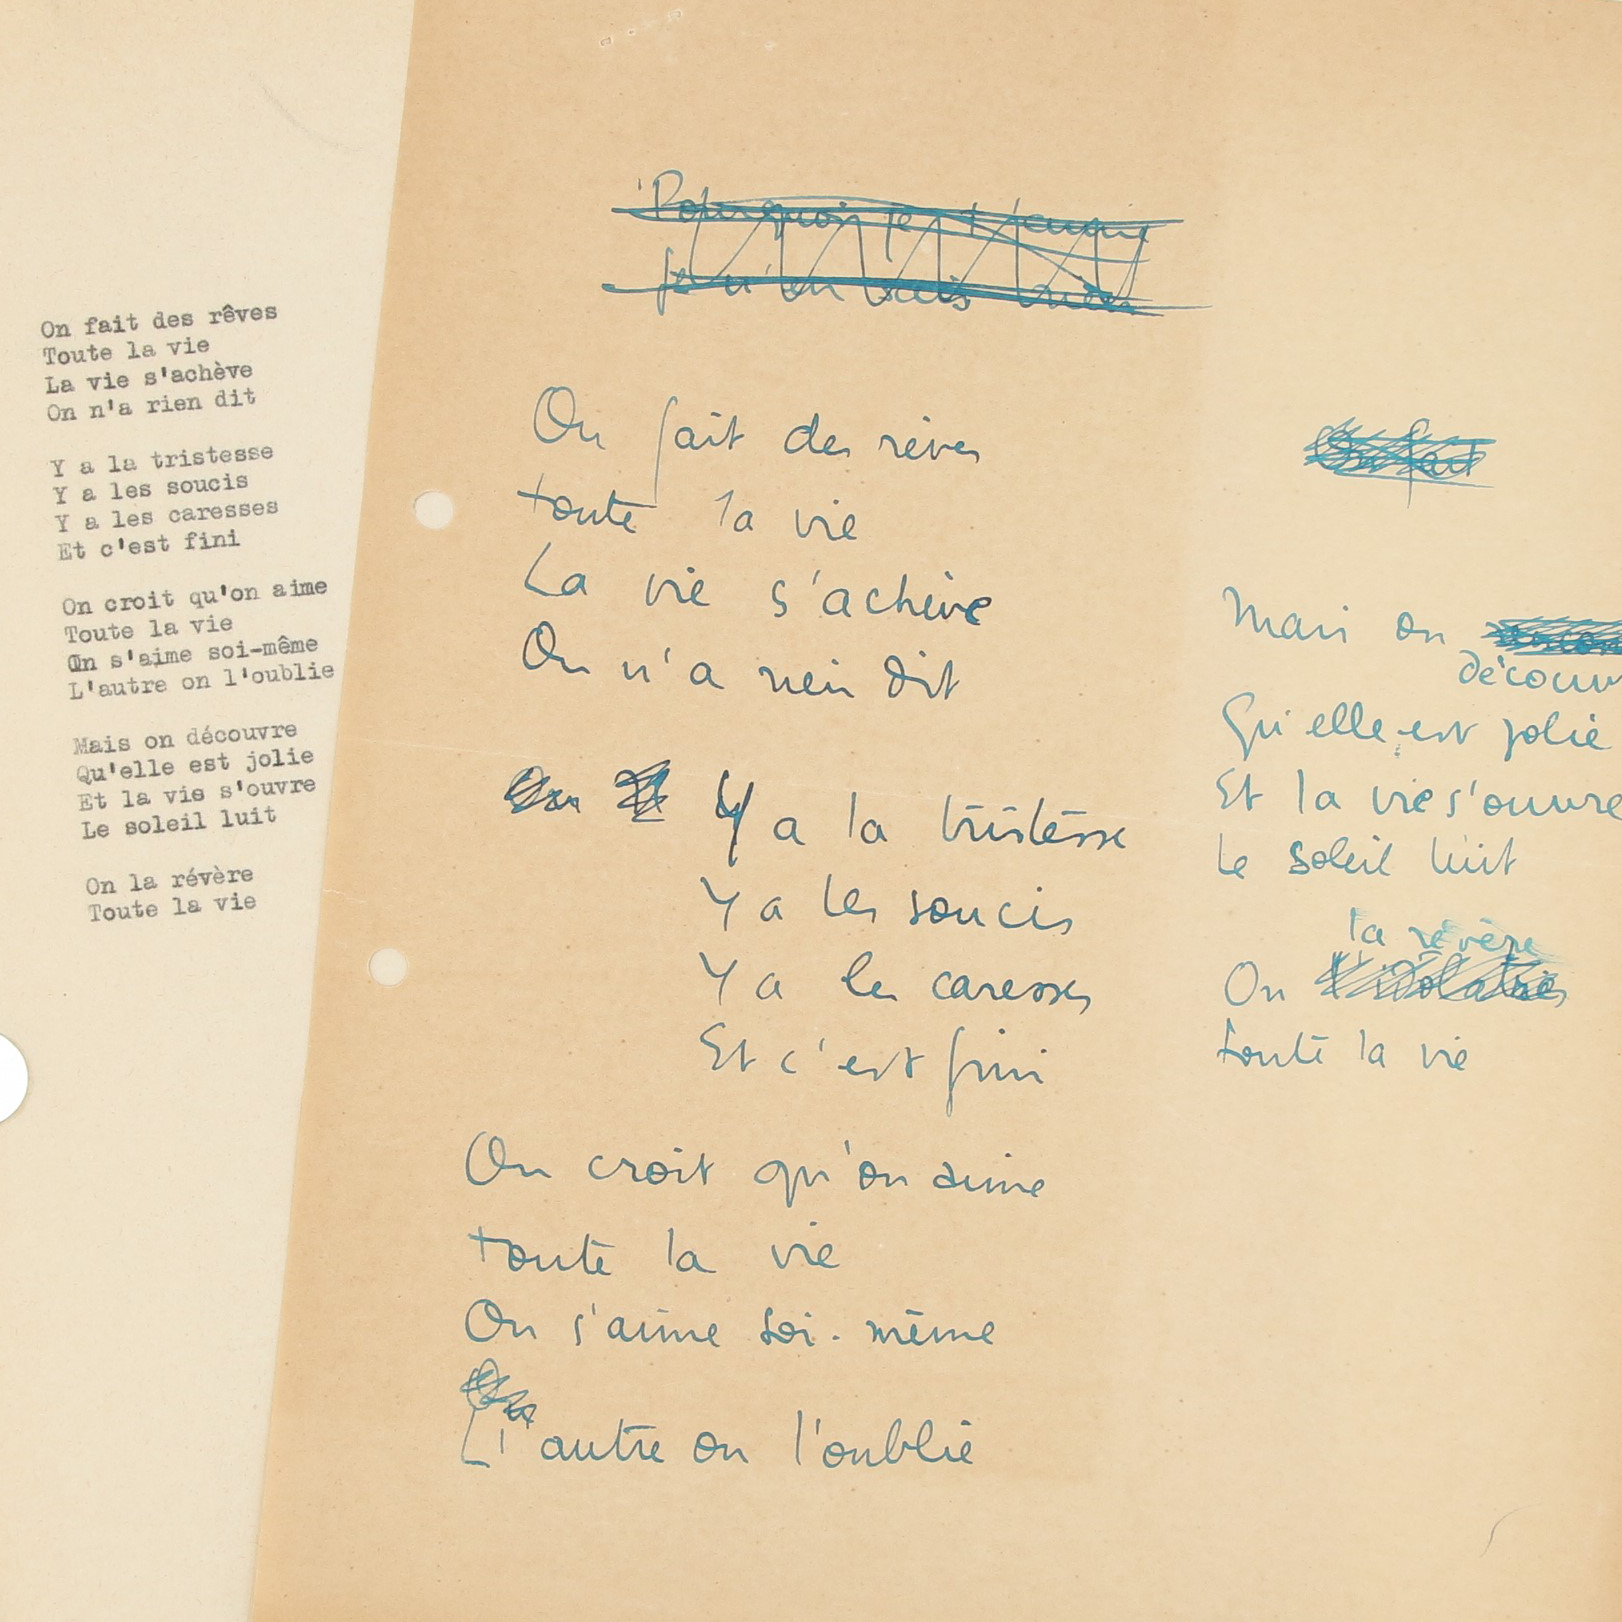 On fait des rêves
Toute la vie
La vie s'achève
On n'a rien dit
Y a la tristesse
Y a les soucis
Y a les caresses
Et c'est fini
On croit qu'on aime
Toute la vie
On s'aime soi-même
L'autre on l'oublie
Mais on découvre
Qu'elle est jolie
Et la vie s'ouvre
Le soleil luit
On la révère
Toute la vie
Pourquoi je t'ennuie
Je n'en sais
On fait des rêves
toute la vie
La vie s'achève
On n'a rien dit
Y a la tristesse
Y a les soucis
Y a les caresses
Et c'est fini
On croit qu'on aime
toute la vie
On s'aime soi-même
L'autre on l'oublie
On fait
Mais on
découv
Qu'elle est jolie
Et la vie s'ouvre
Le soleil luit
la révère
On
toute la vie